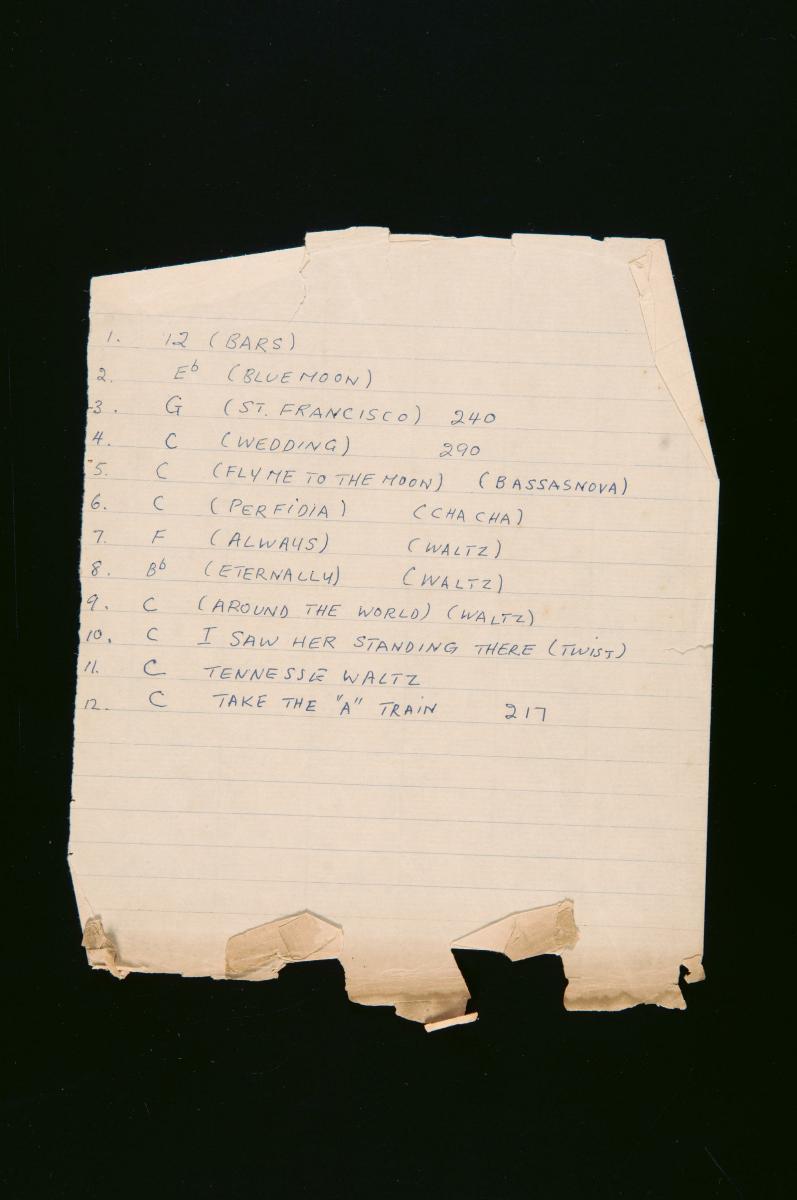 1. 12 (BARS)
2. Eb (BLUE MOON)
3. G (ST. FRANCISCO) 240
4. C (WEDDING) 290
5. C (FLY ME TO THE MOON) (BASSASNOVA)
6. C (PERFIDIA) (CHA CHA)
7. F (ALWAYS) (WALTZ)
8. Bb (ETERNALLY) (WALTZ)
9. C (AROUND THE WORLD) (WALTZ)
10. C I SAW HER STANDING THERE (TWIST)
11. C TENNESSE WALTZ
12. C TAKE THE "A" TRAIN 217